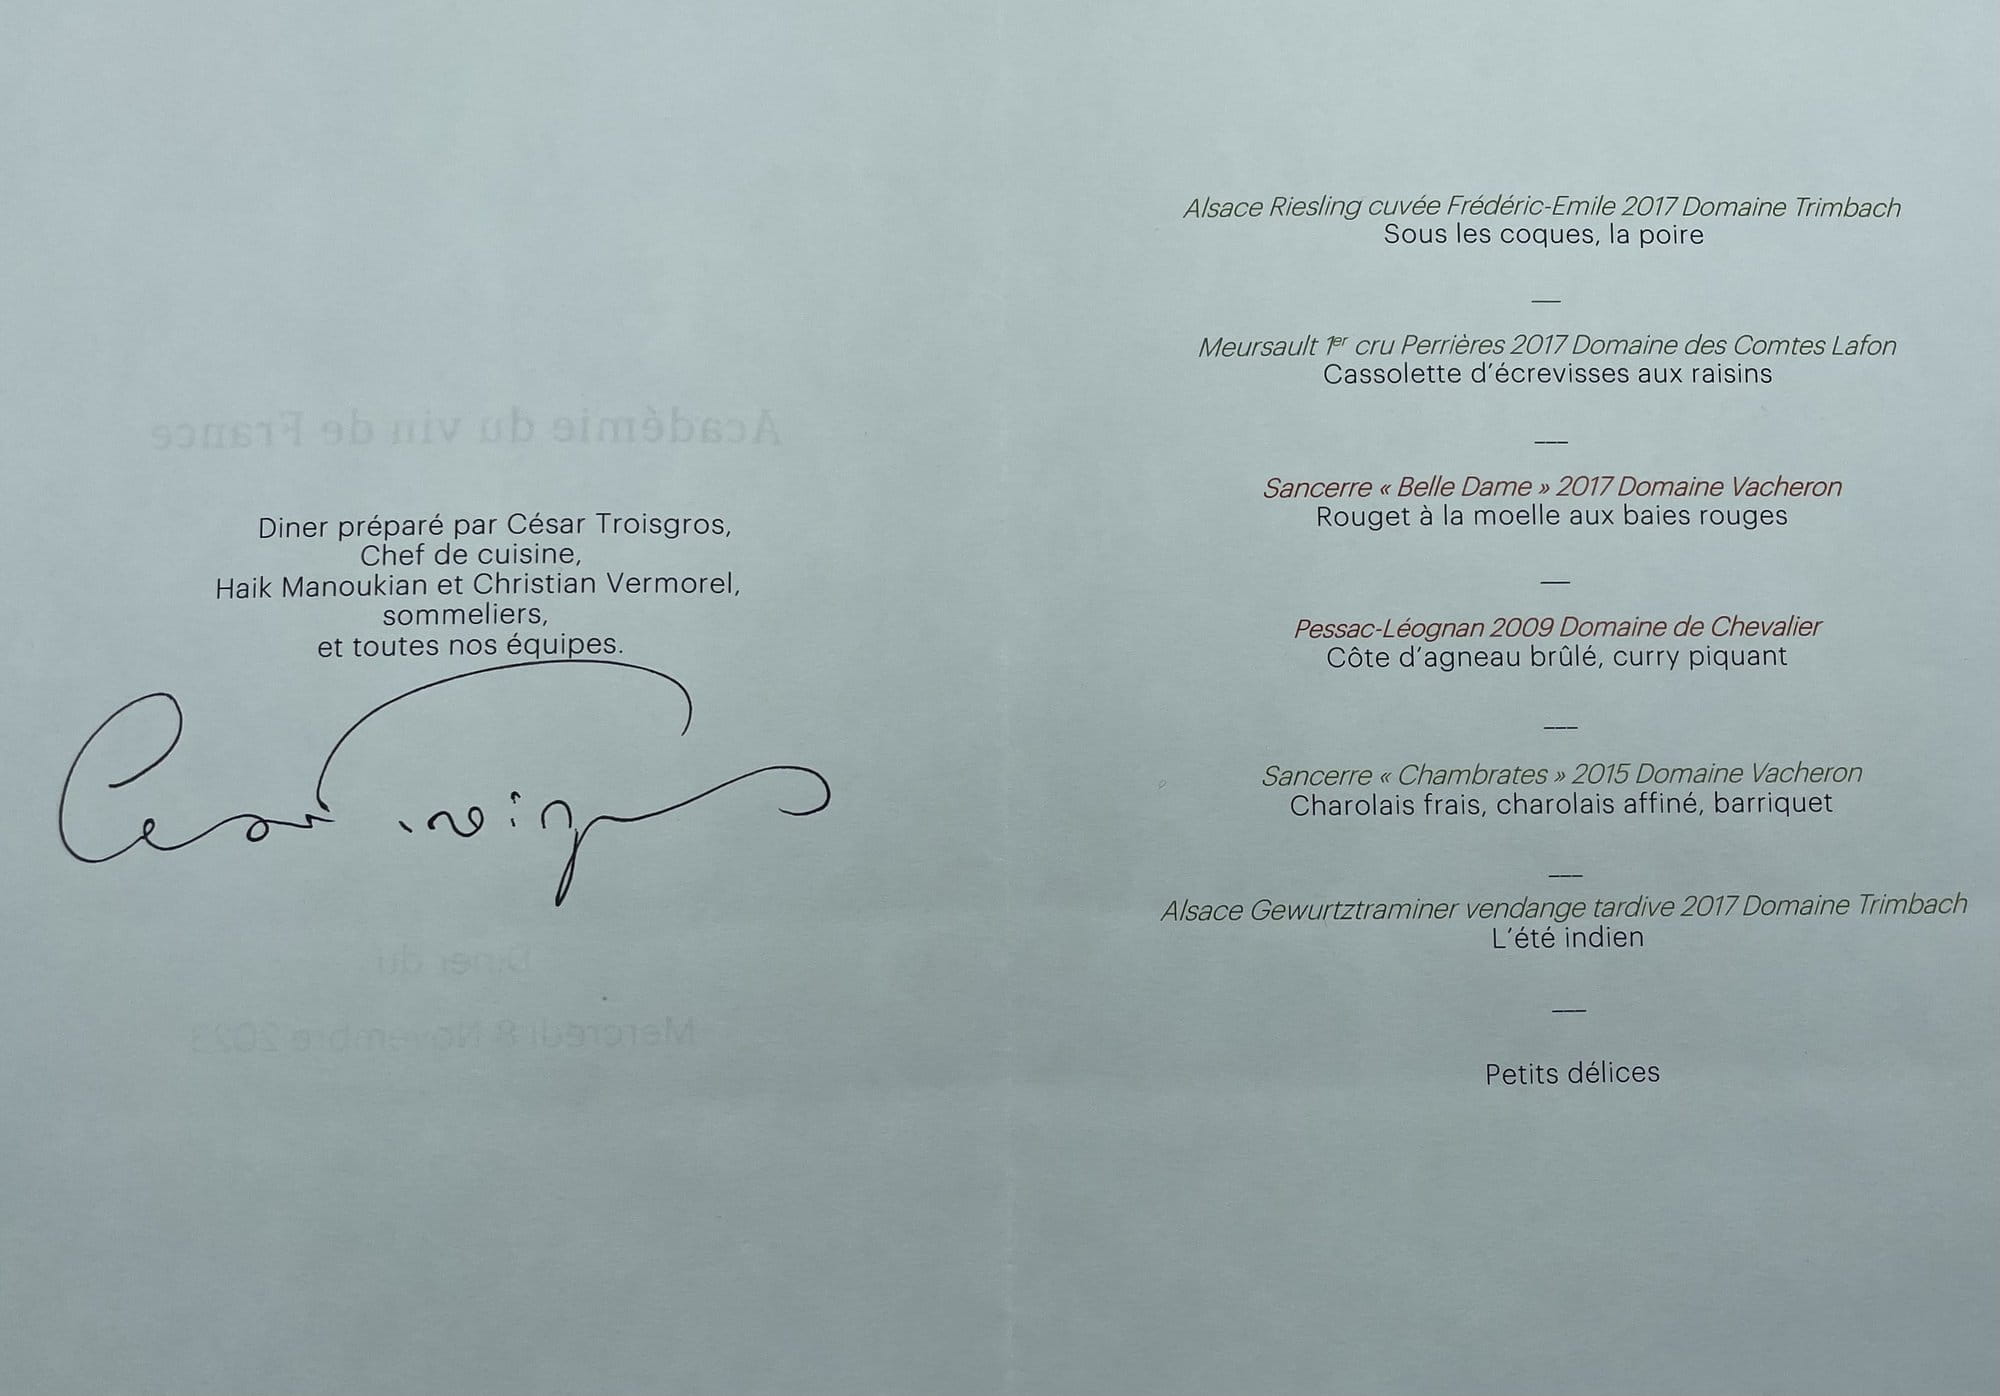 Académie du vin de France
Diner préparé par César Troisgros,
Chef de cuisine,
Haik Manoukian et Christian Vermorel,
sommeliers,
et toutes nos équipes.
Diner du
Mercredi 8 Novembre 2023
Alsace Riesling cuvée Frédéric-Emile 2017 Domaine Trimbach
Sous les coques, la poire
—
Meursault 1er cru Perrières 2017 Domaine des Comtes Lafon
Cassolette d'écrevisses aux raisins
—
Sancerre « Belle Dame » 2017 Domaine Vacheron
Rouget à la moelle aux baies rouges
—
Pessac-Léognan 2009 Domaine de Chevalier
Côte d'agneau brûlé, curry piquant
—
Sancerre « Chambrates » 2015 Domaine Vacheron
Charolais frais, charolais affiné, barriquet
—
Alsace Gewurtztraminer vendange tardive 2017 Domaine Trimbach
L'été indien
—
Petits délices